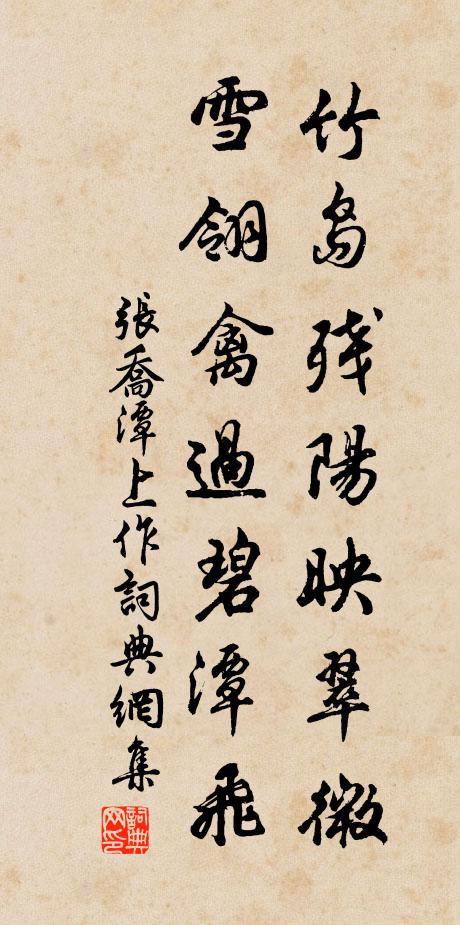 竹島残陽映翠微
雪翎禽過碧潭飛
張喬潭上作詞典網集
詞典網印